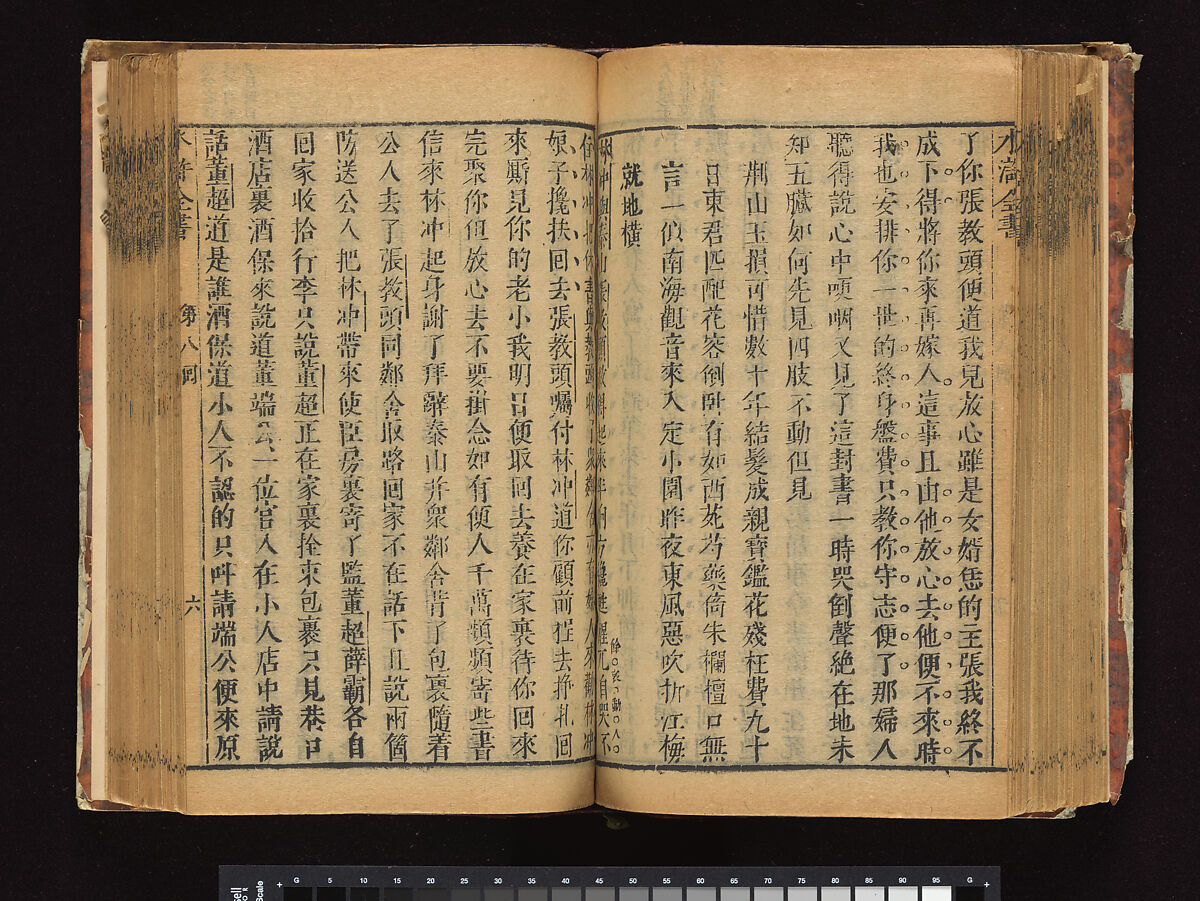 水滸全書
了你張教頭便道我兒放心雖是女婿恁的主張我終不
成下得將你來再嫁人這事且由他放心去他便不來時
我也安排你一世的終身盤費只教你守志便了那婦人
聽得說心中哽咽又見了這封書一時哭倒聲絕在地未
知五臟如何先見四肢不動但見
荊山玉損可惜數十年結髮成親寶鑑花殘枉費九十
日東君匹配花容倒臥有如西苑芍藥倚朱欄檀口無
言一似南海觀音來入定小園昨夜東風惡吹折江梅
就地橫
山張教頭救得起來半晌方纔甦醒兀自哭不
住林冲把休書與教頭收了衆鄰舍亦有婦人來勸林冲
娘子攙扶回去張教頭囑付林冲道你顧前程去掙扎回
來厮見你的老小我明日便取回去養在家裏待你回來
完聚你但放心去不要掛念如有便人千萬頻頻寄些書
信來林冲起身謝了拜辭泰山并衆鄰舍背了包裹隨着
公人去了張教頭同鄰舍取路回家不在話下且說兩箇
防送公人把林冲帶來使臣房裏寄了監董超薛霸各自
回家收拾行李只說董超正在家裏拴束包裹只見巷口
酒店裏酒保來說道董端公一位官人在小人店中請說
話董超道是誰酒保道小人不認的只呌請端公便來原
水滸全書 第八回 六